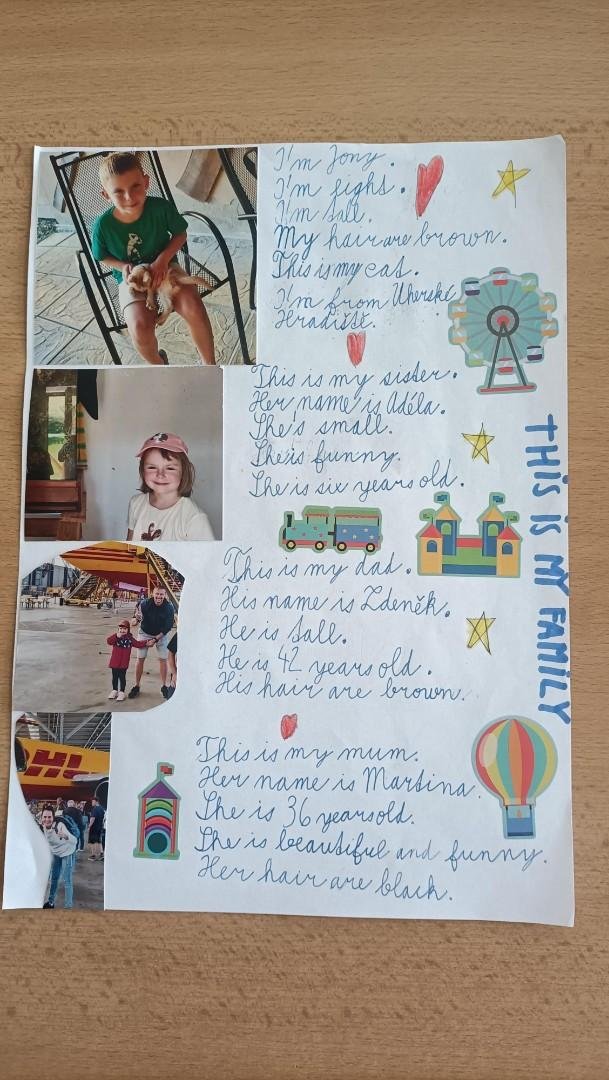 I'm Tony.
I'm eight.
I'm tall.
My hair are brown.
This is my cat.
I'm from Uherské
Hradiště.
This is my sister.
Her name is Adéla.
She's small.
She is funny.
She is six years old.
This is my dad.
His name is Zdeněk.
He is tall.
He is 42 years old.
His hair are brown.
This is my mum.
Her name is Martina.
She is 36 years old.
She is beautiful and funny.
Her hair are black.
THIS IS MY FAMILY